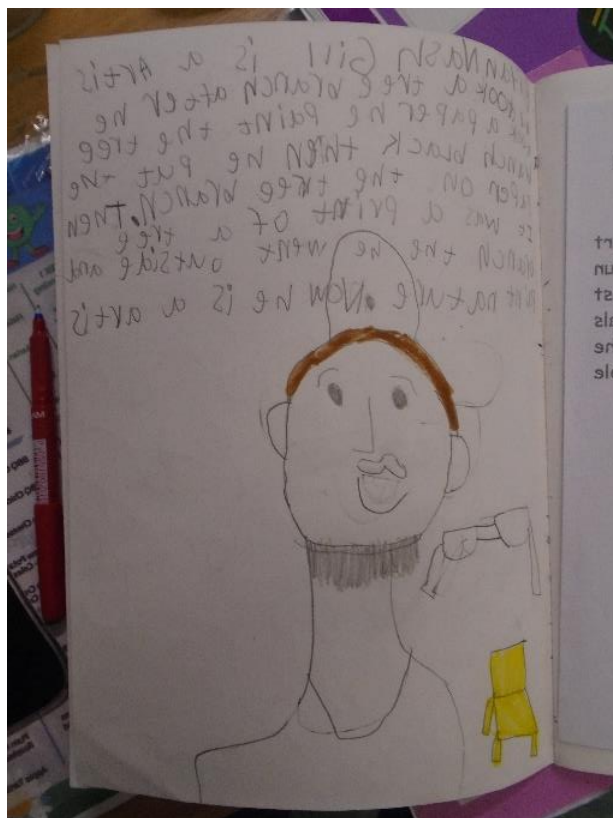 Nash Gill is a Artis
he took a tree branch after he
took a paper he paint the tree
branch black then he put the
paper on the tree branch. then
It was a print of a tree
branch the he went outside and
print nature. Now he is a artis